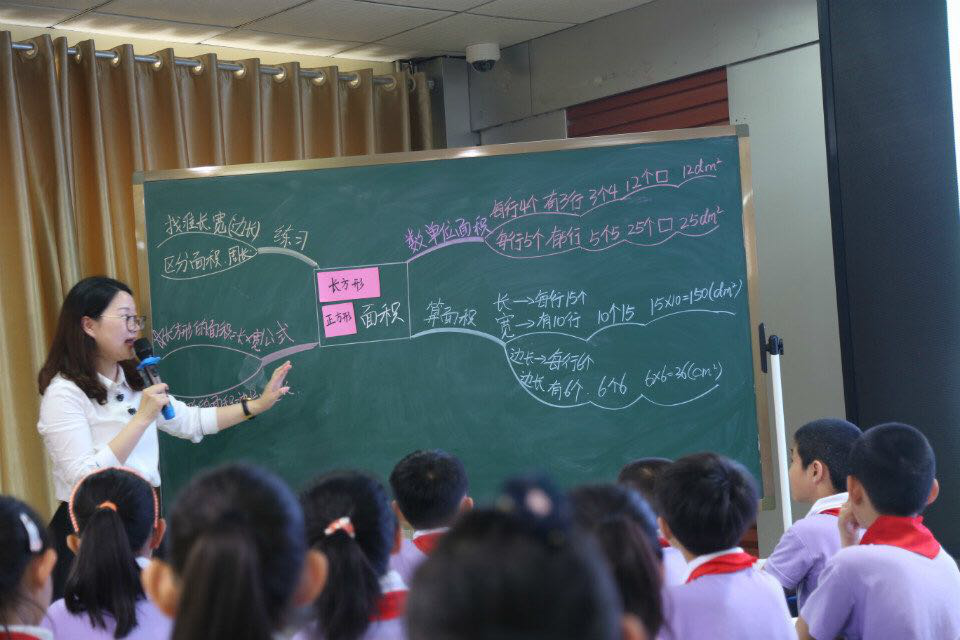 找准长宽(边长)
区分面积.周长
练习
长方形
正方形
面积
长方形的面积=长×宽
公式
数单位面积
每行4个 有3行 3个4 12个□ 12dm²
每行5个 有5行 5个5 25个□ 25dm²
算面积
长→每行15个
宽→有10行 10个15 15×10=150(dm²)
边长→每行6个
边长 有6个. 6个6 6×6=36(cm²)